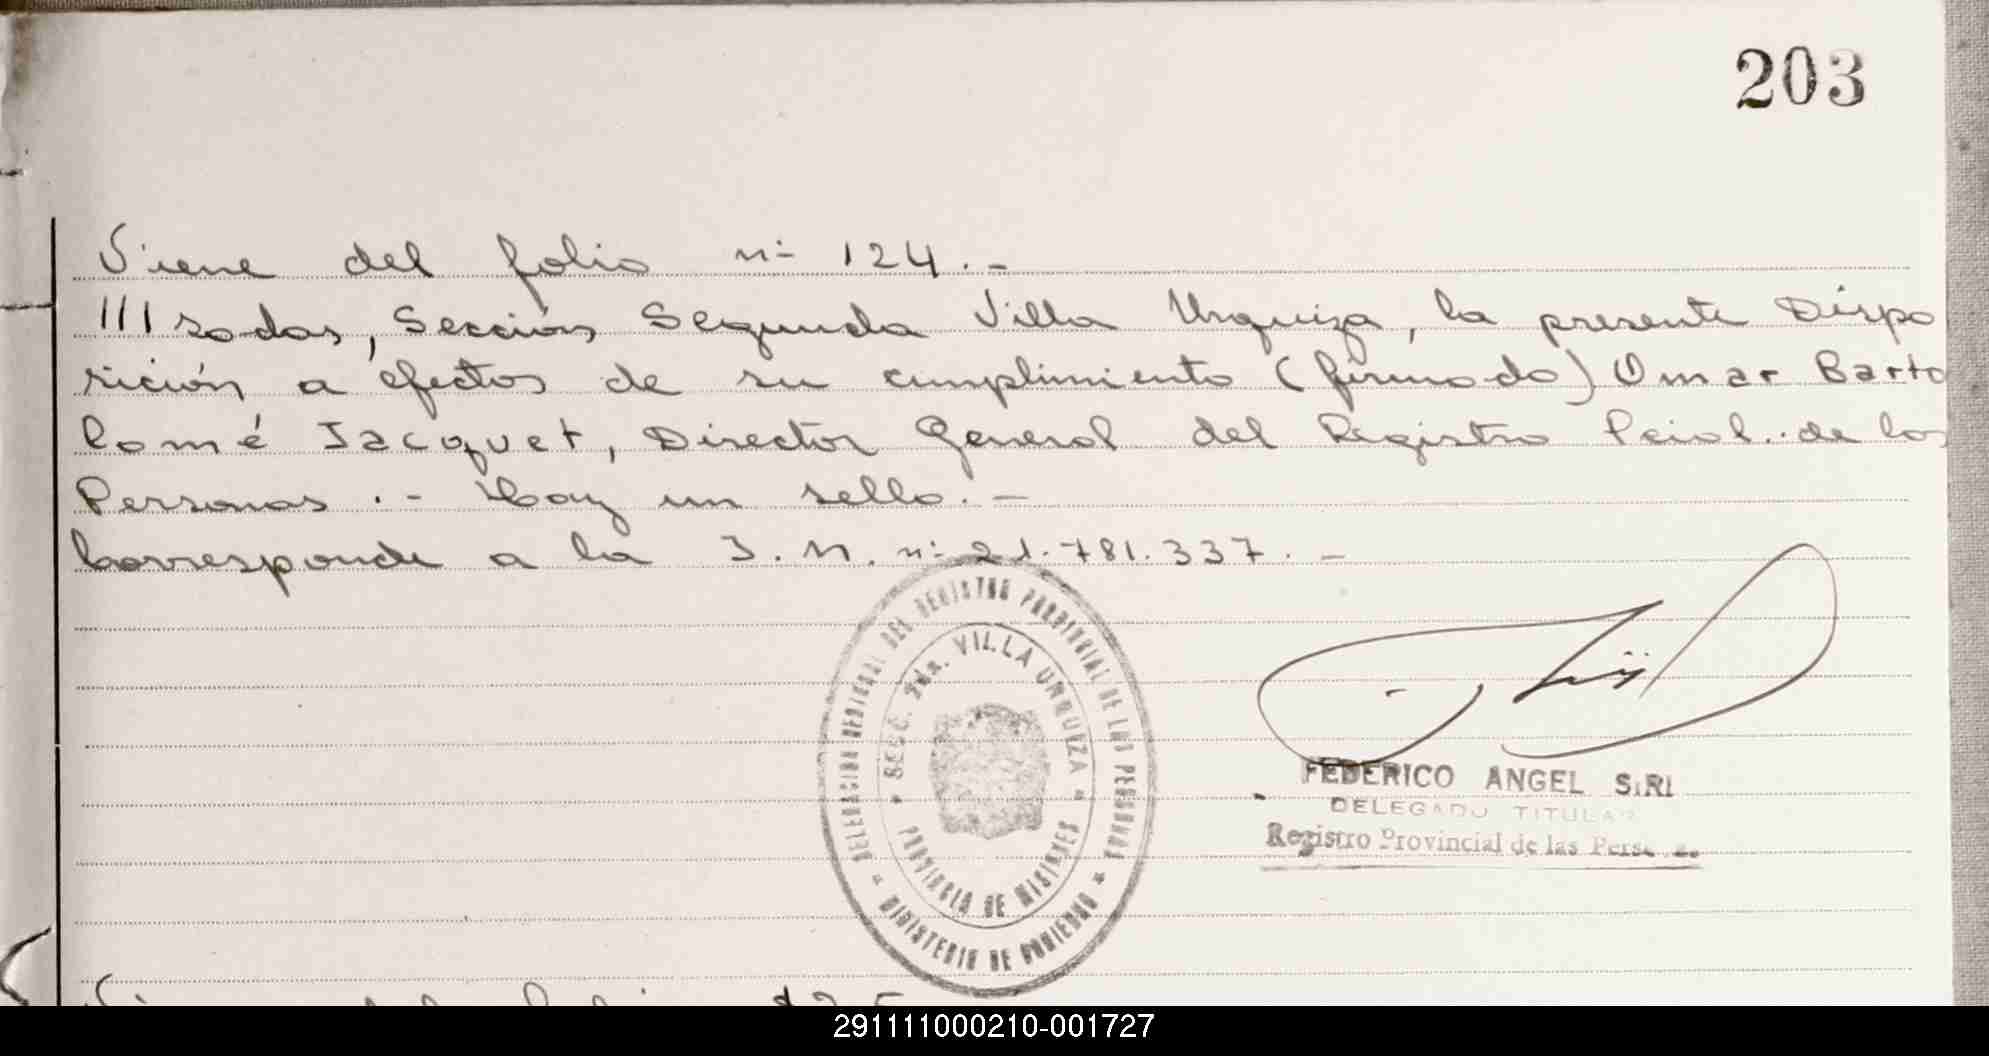 203
Viene del folio nº 124.-
///sadas, Sección Segunda Villa Urquiza, la presente Dispo
sición a efectos de su cumplimiento (firmado) Omar Barto
lomé Jacquet, Director General del Registro Pcial. de las
Personas.- Hay un sello.-
Corresponde a la I.N. nº 21.781.337.-
DELEGACION DEL REGISTRO PROVINCIAL DE LAS PERSONAS
SECC. 2da. VILLA URQUIZA
PROVINCIA DE MISIONES
MINISTERIO DE GOBIERNO
FEDERICO ANGEL SIRI
DELEGADO TITULAR
Registro Provincial de las Personas
291111000210-001727